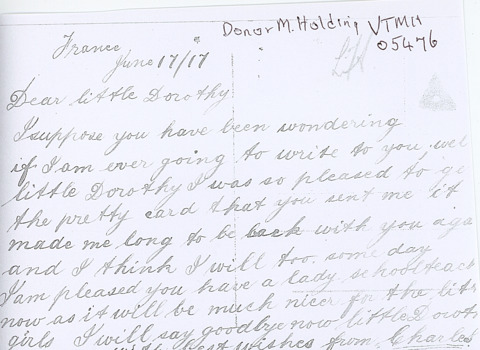 Donor M. Holding VTMH
05476
France
June 17/17
Dear little Dorothy
I suppose you have been wondering
if I am ever going to write to you. wel
little Dorothy I was so pleased to ge
the pretty card that you sent me it
made me long to be back with you aga
and I think I will too some day
I am pleased you have a lady schoolteach
now as it will be much nicer for the litt
girls I will say goodbye now little Doroth
best wishes from Charles